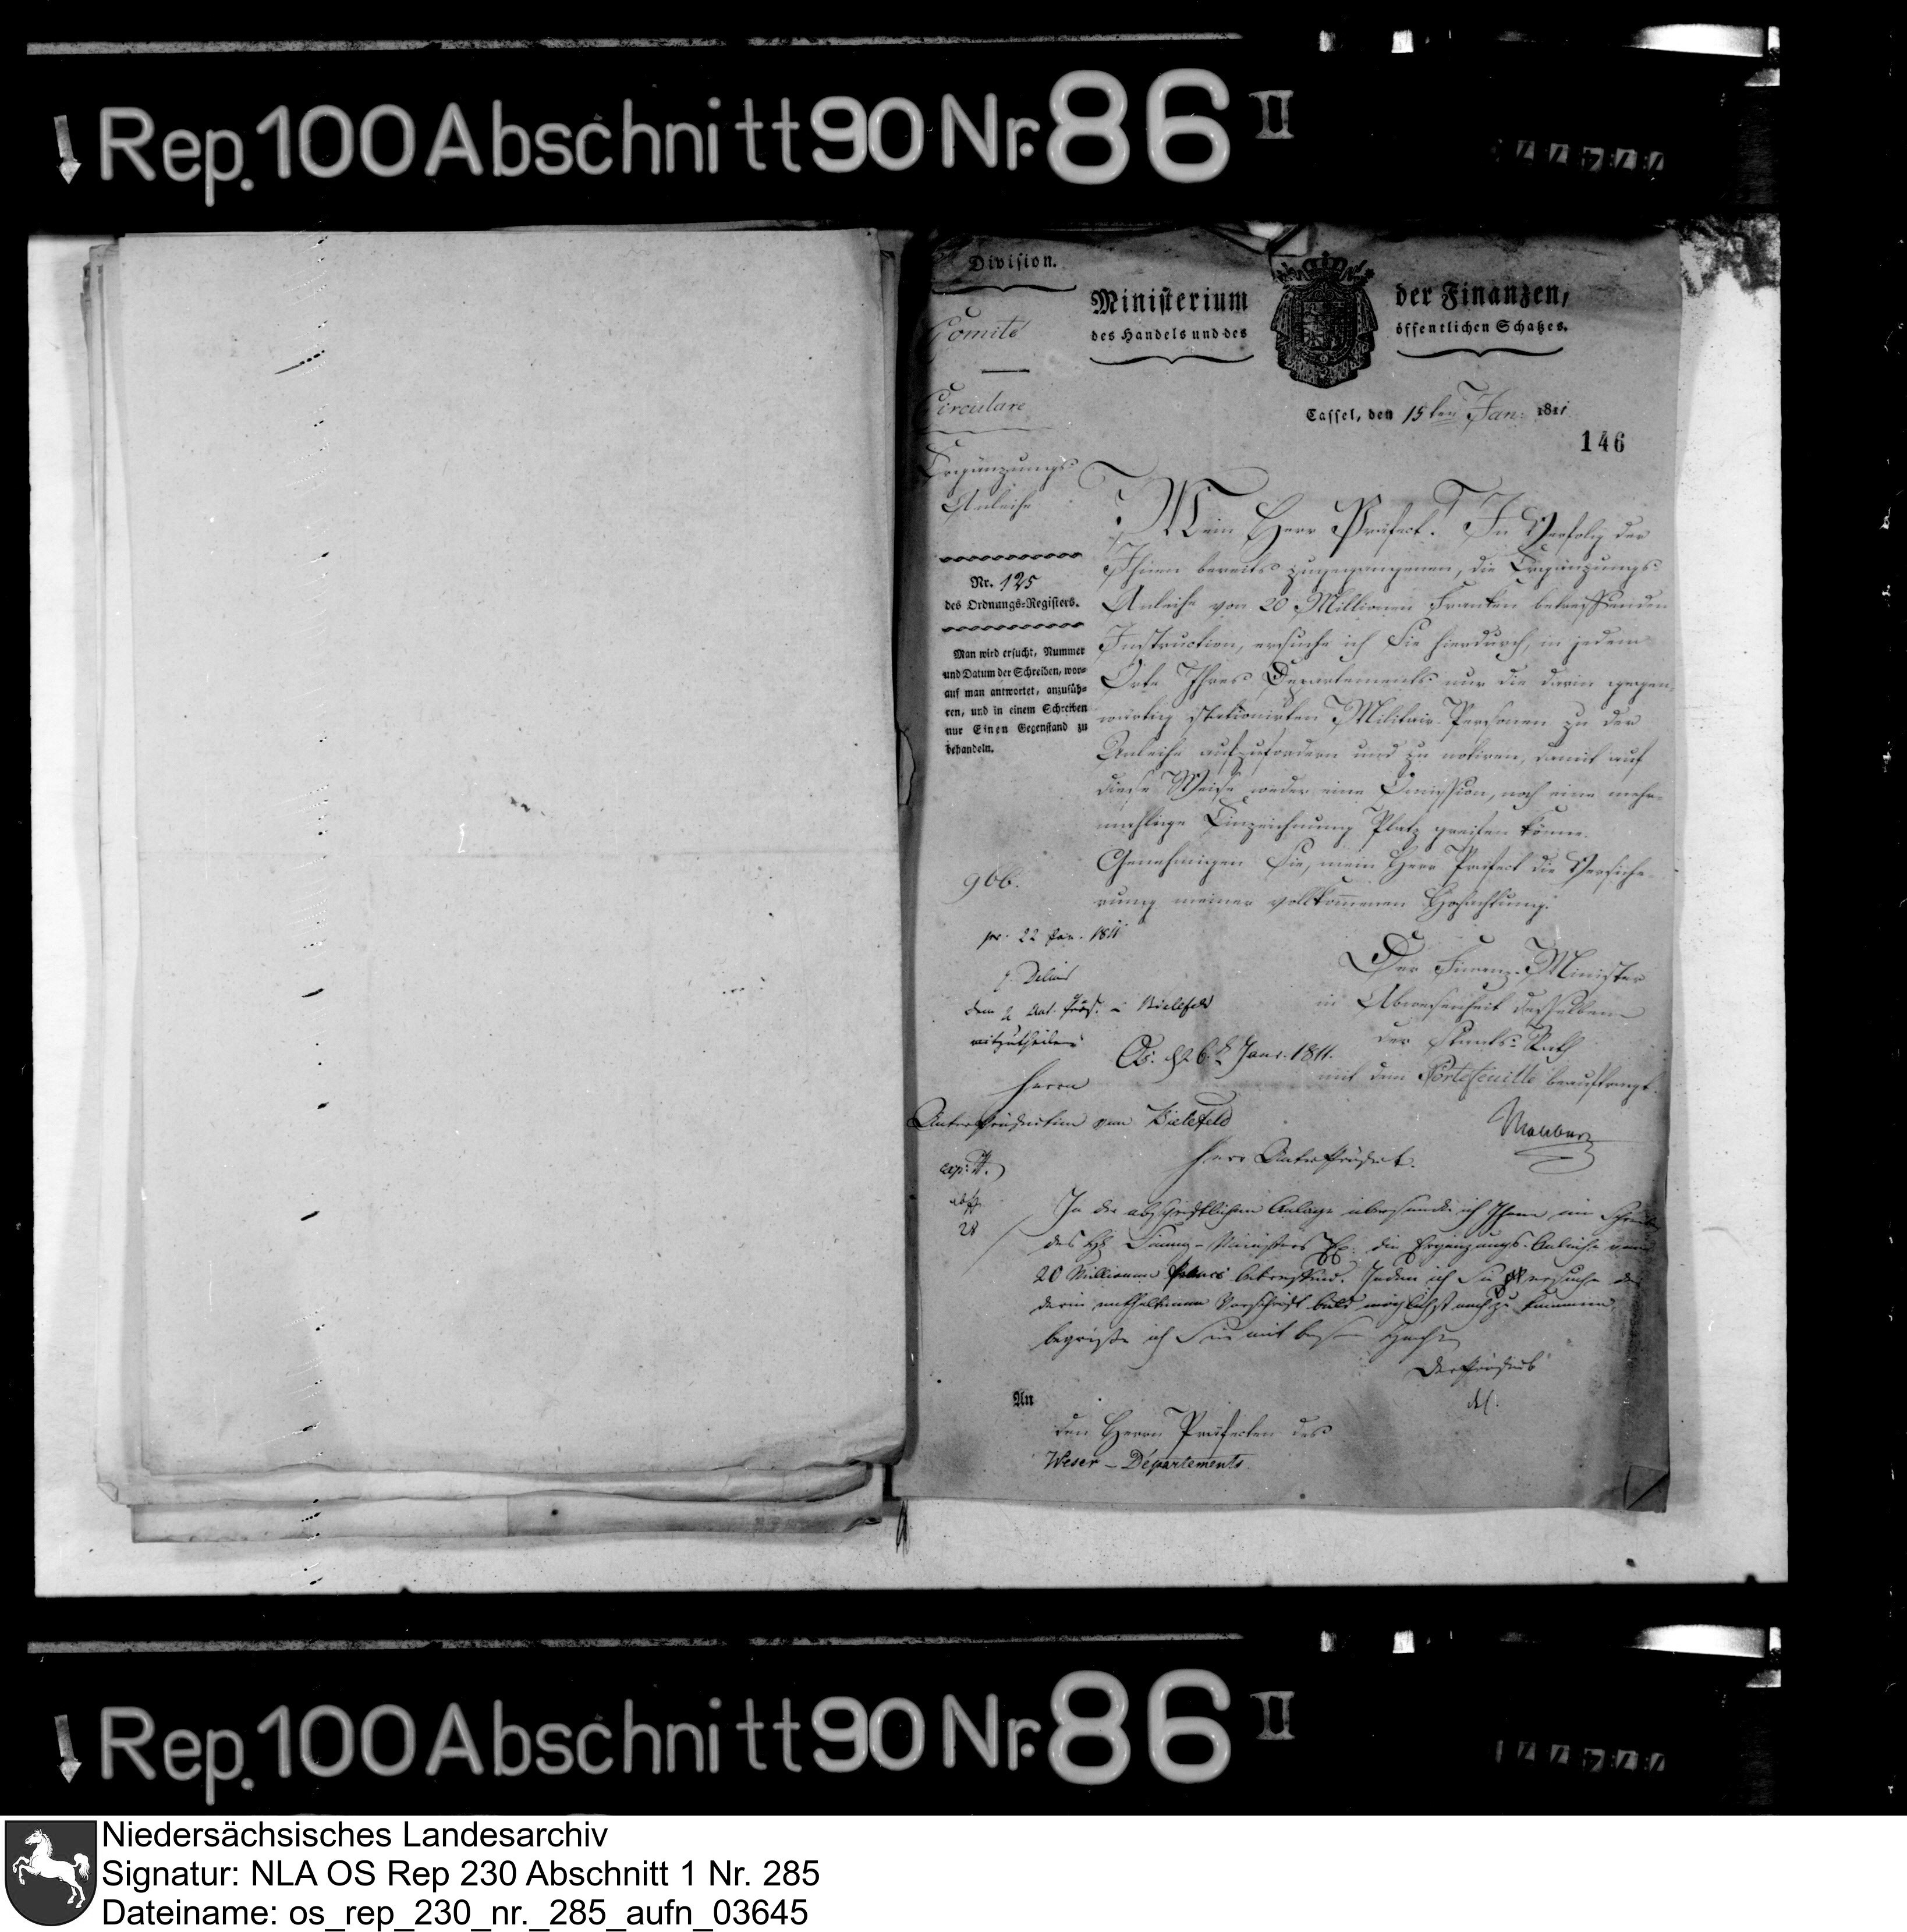 Rep. 100 Abschnitt 90 Nr. 86 II
Division.
Comité
Circulare
Ergänzungs-
Anleihe
Nr. 125
des Ordnungs-Registers.
Man wird ersucht, Nummer
und Datum der Schreiben, wor-
auf man antwortet, anzufüh-
ren, und in einem Schreiben
nur Einen Gegenstand zu
behandeln.
Ministerium der Finanzen,
des Handels und des öffentlichen Schatzes.
Cassel, den 15ten Jan: 1811
146
Mein Herr Präfect! In Verfolg der
Ihnen bereits zugegangenen, die Ergänzungs-
Anleihe von 20 Millionen Franken betreffenden
Instruction, ersuche ich Sie hierdurch, in jedem
Orte Ihres Departements nur die darin gegen-
wärtig stationirten Militair-Personen zu der
Anleihe aufzufordern und zu notiren, damit auf
diese Weise weder eine Omission, noch eine mehr-
mahlige Einzeichnung Platz greifen könne.
Genehmigen Sie, mein Herr Präfect die Versiche-
rung meiner vollkommenen Hochachtung.
Der Finanz-Minister
in Abwesenheit desselben
der Staats-Rath
mit dem Portefeuille beauftragt.
966.
pr. 22 Jan. 1811
Delius
dem Präf. Bielefeld
mitzutheilen
Os: d 26. Janr. 1811.
Herrn
Unterpräfecten von Bielefeld
Herr Unterpräfect.
28
In der abschriftlichen Anlage übersende ich Ihnen ein Schreiben
des Finanz-Ministers die Ergänzungs-Anleihe von
20 Millionen betreffend. Indem ich Sie ersuche der
darin enthaltenen Vorschrift bald möglichst nach zu kommen,
begrüße ich Sie mit
Der Präfect
An
den Herrn Präfecten des
Weser-Départements.
Rep. 100 Abschnitt 90 Nr. 86 II
Niedersächsisches Landesarchiv
Signatur: NLA OS Rep 230 Abschnitt 1 Nr. 285
Dateiname: os_rep_230_nr._285_aufn_03645